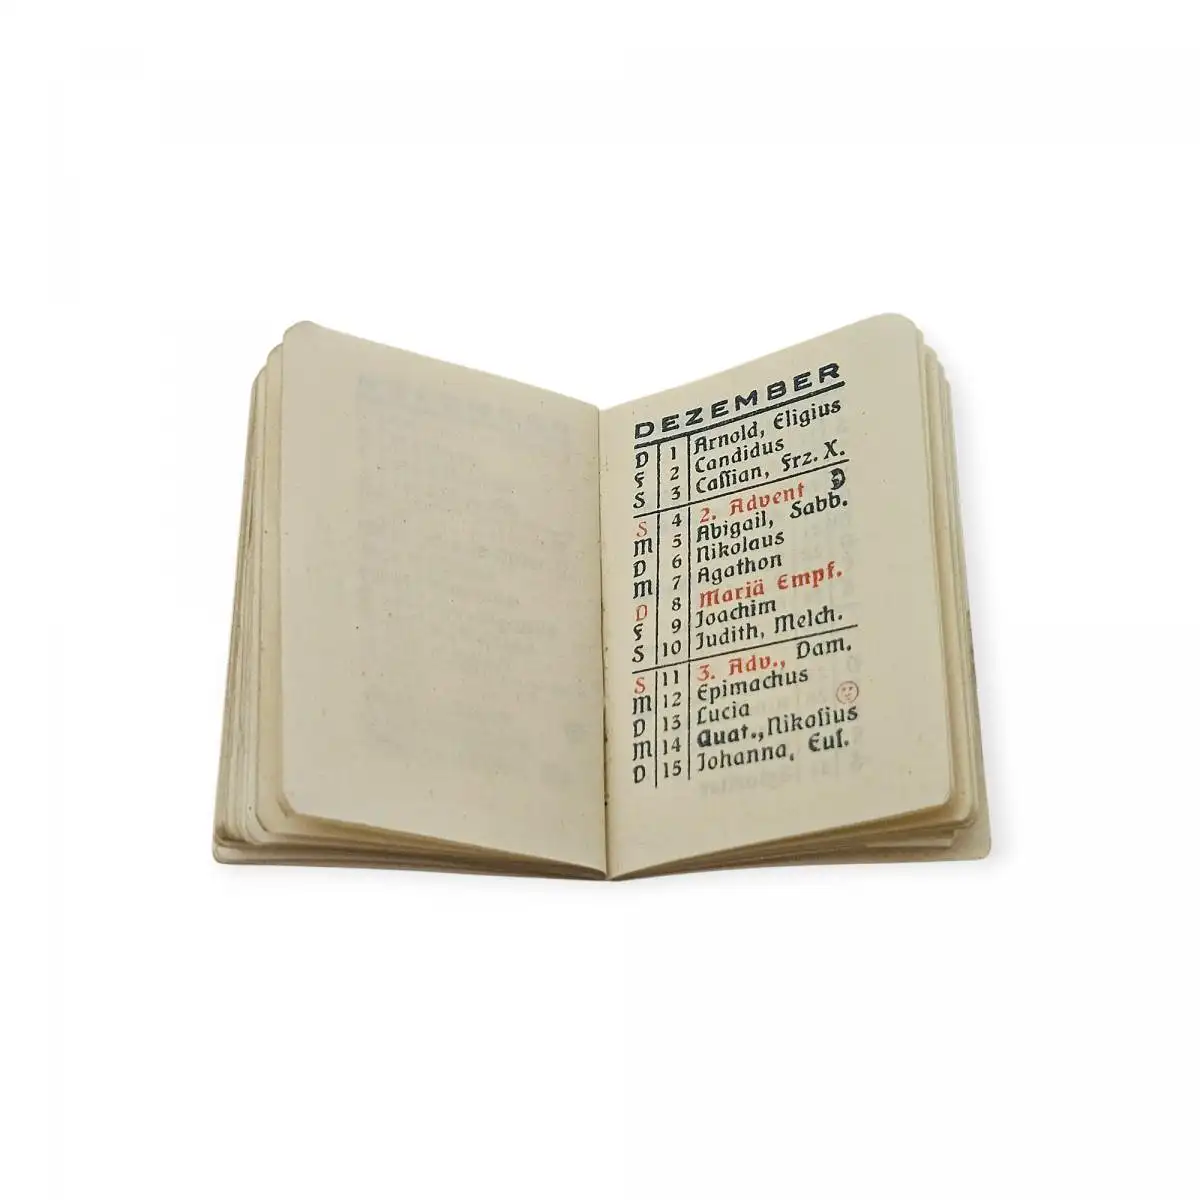 DEZEMBER
D 1 Arnold, Eligius
F 2 Candidus
S 3 Caſſian, Frz. X.
S 4 2. Advent
M 5 Abigail, Sabb.
D 6 Nikolaus
M 7 Agathon
D 8 Mariä Empf.
F 9 Joachim
S 10 Judith, Melch.
S 11 3. Adv., Dam.
M 12 Epimachus
D 13 Lucia
M 14 Quat., Nikoſius
D 15 Johanna, Euſ.